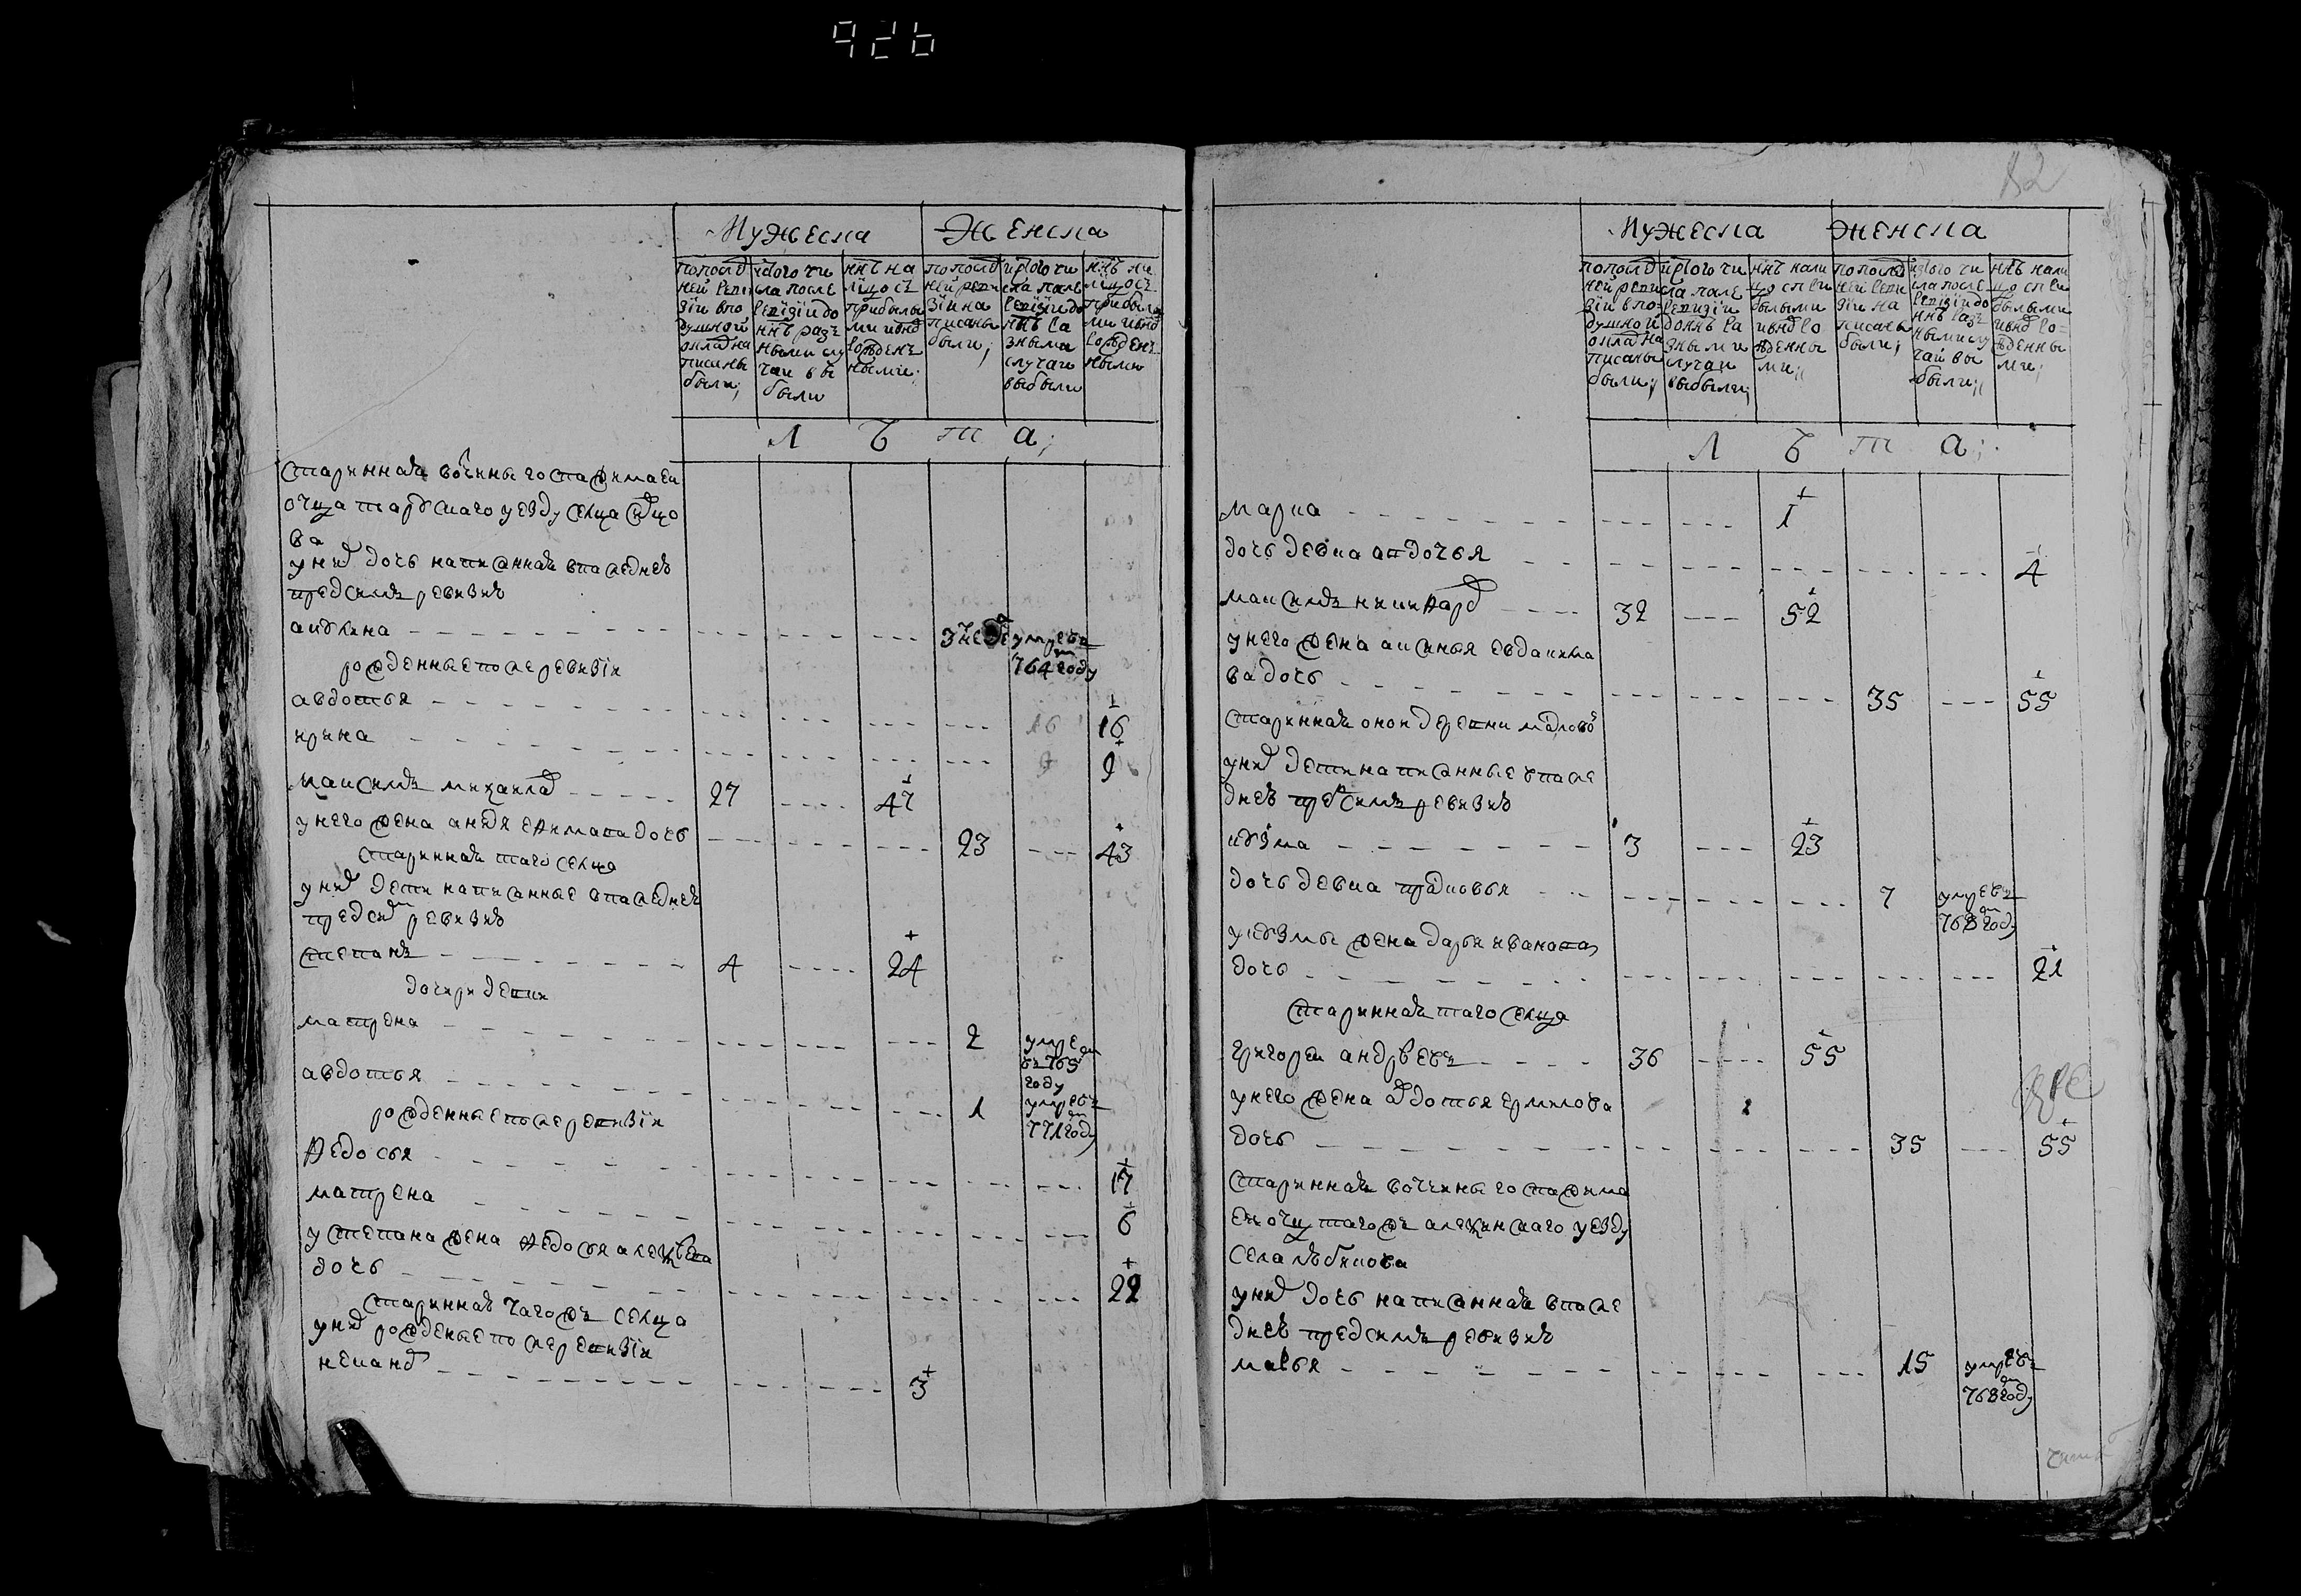 926
Мужеска Женска
по послѣд
ней реви
зіи в по
душной
оклад на
писаны
были;
из того чи
сла после
ревизіи до
ннѣ разъ
ными слу
чаи вы
были
ннѣ на
лицо съ
прибылы
ми и внов
рожден
ными;
по послѣд
ней реви
зіи на
писаны
были;
из того чи
сла после
ревизіи до
ннѣ ра
зныма
случаи
выбыли
ннѣ на
лицо съ
прибылы
ми и внов
рожден
ными
Л Ѣ т а;
старинная вотчины
уезду селца
ва
у них дочь написанная в последней
пред сим ревизии
акулина 3 недѣ умре въ
764 году
рожденные после ревизіи
авдотья 16 16
ирина 9 9
максимъ михаилов 27 47
у него жена дочь 23 43
старинная того селца
у них дети написанные в последней
пред сим ревизии
степанъ 4 24
дочери девки
матрена 2 умре
въ 765
году
авдотья 1 умре въ
771 году
рожденные после ревизіи
федосья 17
матрена 6
у степана жена федосья алексѣева
дочь 22
старинная того ж селца
у них рожденые после ревизіи
3
82
Мужеска женска
по послѣд
ней реви
зіи в по
душной
оклад на
писаны
были;
из того чи
сла после
ревизіи
до ннѣ ра
зными
случаи
выбыли;
ннѣ нали
цо с при
былыми
и внов ро
жденны
ми;
по послѣд
ней реви
зіи на
писаны
были;
из того чи
сла после
ревизіи до
ннѣ раз
ными слу
чаи вы
были;
ннѣ нали
цо с при
былыми
и внов ро=
жденны
ми;
Л Ѣ т а;
марка 1
дочь девка авдотья 4
максимъ никифоров 32 52
у него жена аксинья евдокимо
ва дочь 35 55
старинная оной деревни
у них дети написанные в после
дней пред симъ ревизии
кузма 3 23
дочь девка прасковья 7 умре въ
768 году
у кузмы жена дарья иванова
дочь 21
старинная того селца
григорей андрѣевъ 36 55
у него жена авдотья ермилова
дочь 35 55
старинная вотчины
того ж алексинскаго уезду
села
у них дочь написанная в после
дней пред симъ ревизии
марья 15 умре въ
768 году